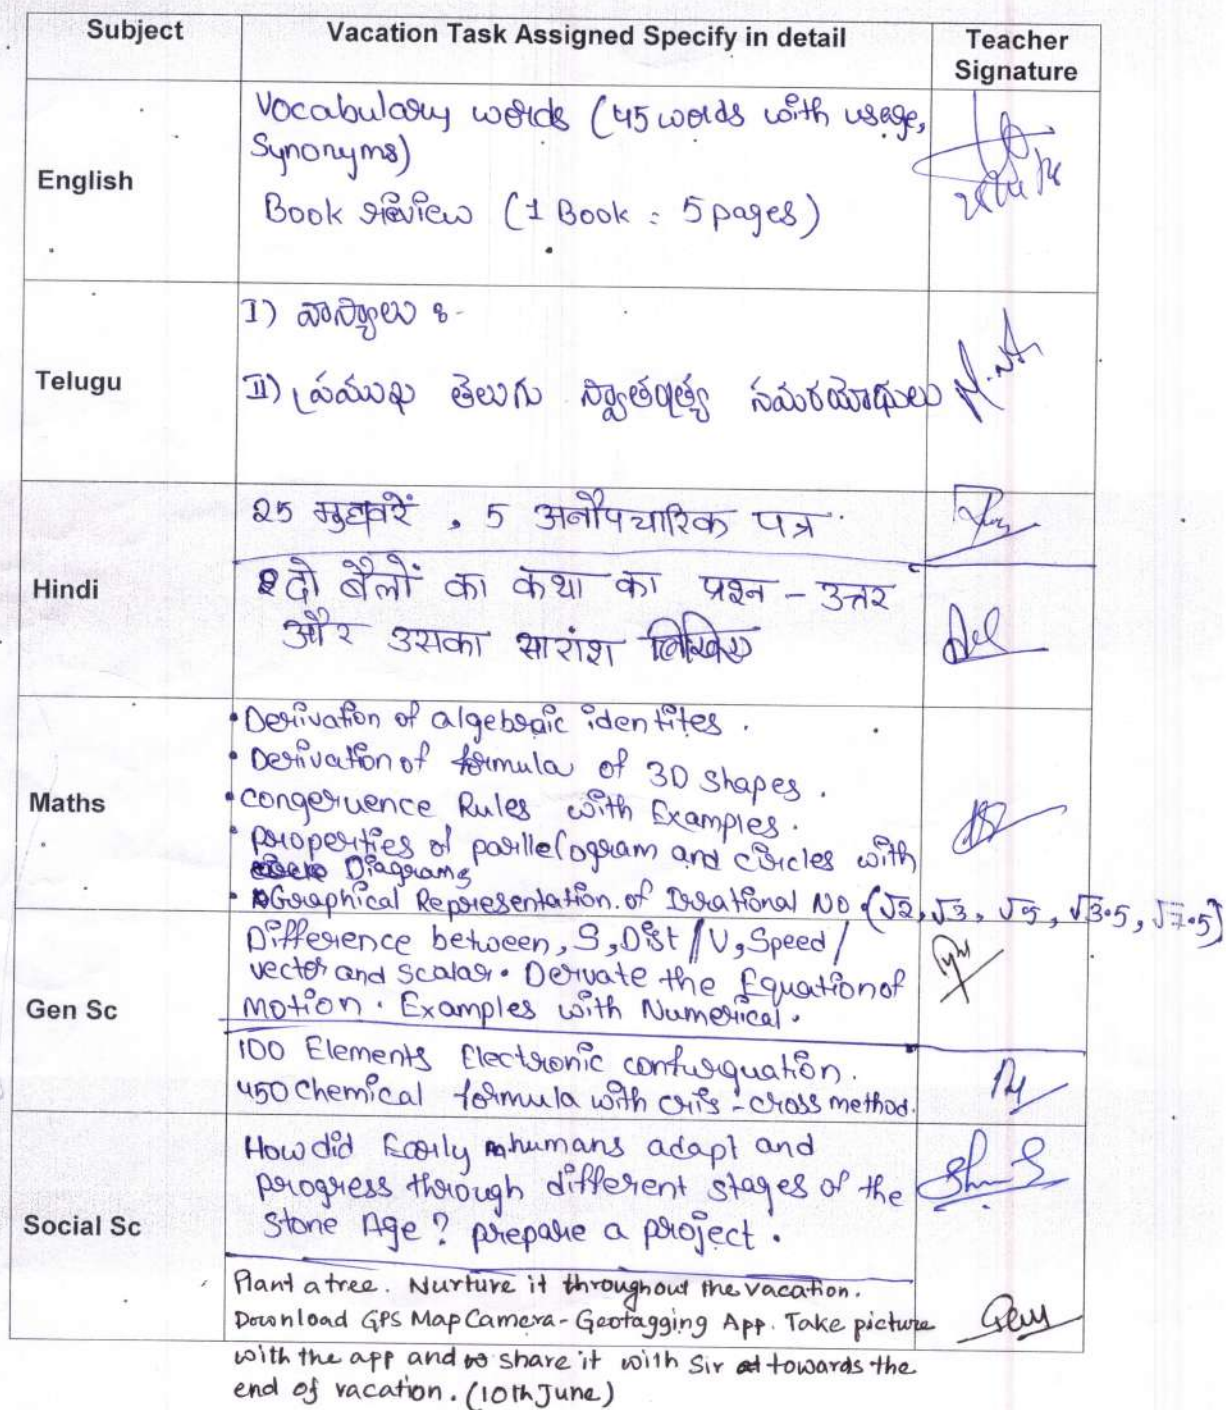 Subject Vacation Task Assigned Specify in detail Teacher
Signature
English
Vocabulary words (45 words with usage,
Synonyms)
Book review (1 Book : 5 pages)
Telugu
I) వ్యాసాలు :-
II) ప్రముఖ తెలుగు స్వాతంత్ర్య సమరయోధులు
Hindi
25 मुहावरें , 5 अनौपचारिक पत्र
दो बैलों का कथा का प्रश्न - उत्तर
और उसका सारांश लिखिए
Maths
• Derivation of algebraic identites .
• Derivation of formula of 3D shapes .
• congeruence Rules with Examples .
• properties of parllelogram and circles with
Diagrams
• Graphical Representation of Irrational No. (√2, √3, √5, √3.5, √7.5)
Gen Sc
Difference between, S, Dist / V, Speed /
vector and scalar. Dervate the Equation of
Motion. Examples with Numerical.
100 Elements Electronic confurquation.
450 Chemical formula with cris-cross method.
Social Sc
How did Early humans adapt and
progress through different stages of the
Stone Age ? prepare a project .
Plant a tree. Nurture it throughout the vacation.
Download GPS Map Camera - Geotagging App. Take picture
with the app and share it with Sir towards the
end of vacation. (10th June)